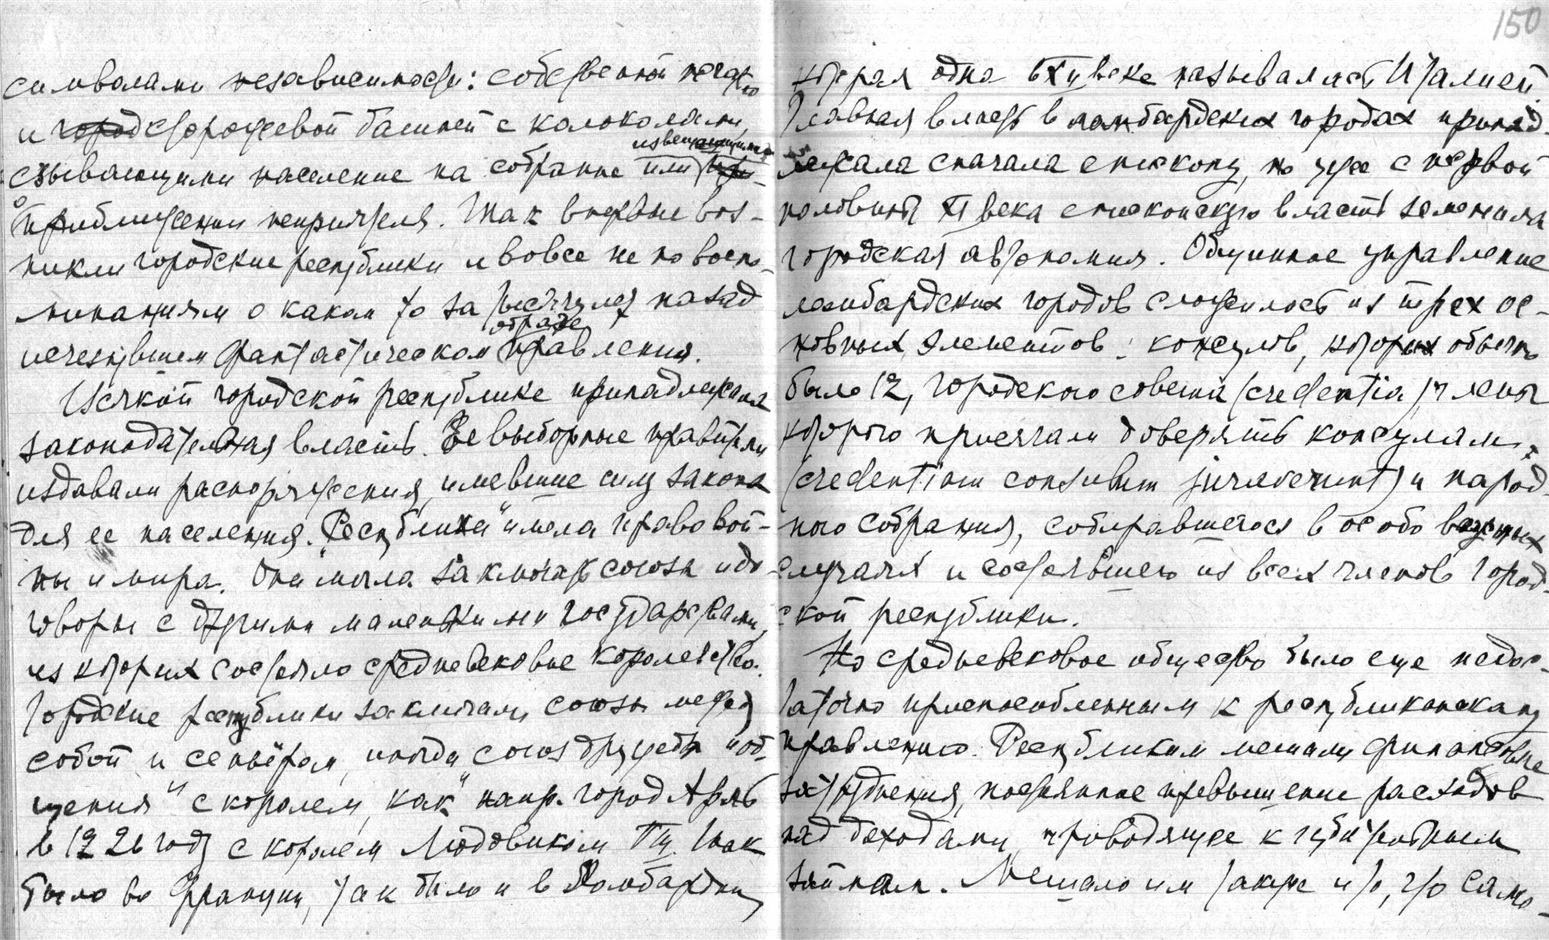 символами независимости: собственной печатью
и сторожевой башней с колоколами,
извещающими
сзывающими население на собрание или
о приближении неприятеля. Так впервые воз-
никли городские республики и вовсе не по воспо-
минаниям о каком то за тысячелет назад
образе
исчезнувшем фантастическом правления.
Всякой городской республике принадлежала
законодательная власть. Ее выборные правители
издавали распоряжения, имевшие силу закона
для ее населения. "Республика" имела право вой-
ны и мира. Она могла заключать союзы и до-
говоры с другими маленькими государствами,
из которых состояло средневековое королевство.
Городские республики заключали союзы между
собой и сеньёром, иногда союз дружбы и об-
щения" с королем, как напр. город Арль
в 1226 году с королем Людовиком Так
было во Франции, так было и в Ломбардии,
150
которая одна в XII веке называлась Италией
Главная власть в ломбардских городах принад-
лежала сначала епископу, но уже с первой
половины XI века епископскую власть заменила
городская автономия. Общинное управление
ломбардских городов сложилось из трех ос-
новных элементов: консулов, которых обычно
было 12, городского совета (credentia), члены
которого присягали доверять консулам
(credentiam consulum juraverunt) и народ-
ного собрания, собиравшегося в особо важных
случаях и состоявшего из всех членов город-
ской республики.
Но средневековое общество было еще недос-
таточно приспособленным к республиканскому
правлению. Республикам мешали финансовые
затруднения, постоянное превышение расходов
над доходами, приводящее к губительным
займам. Мешало им также и то, что само-